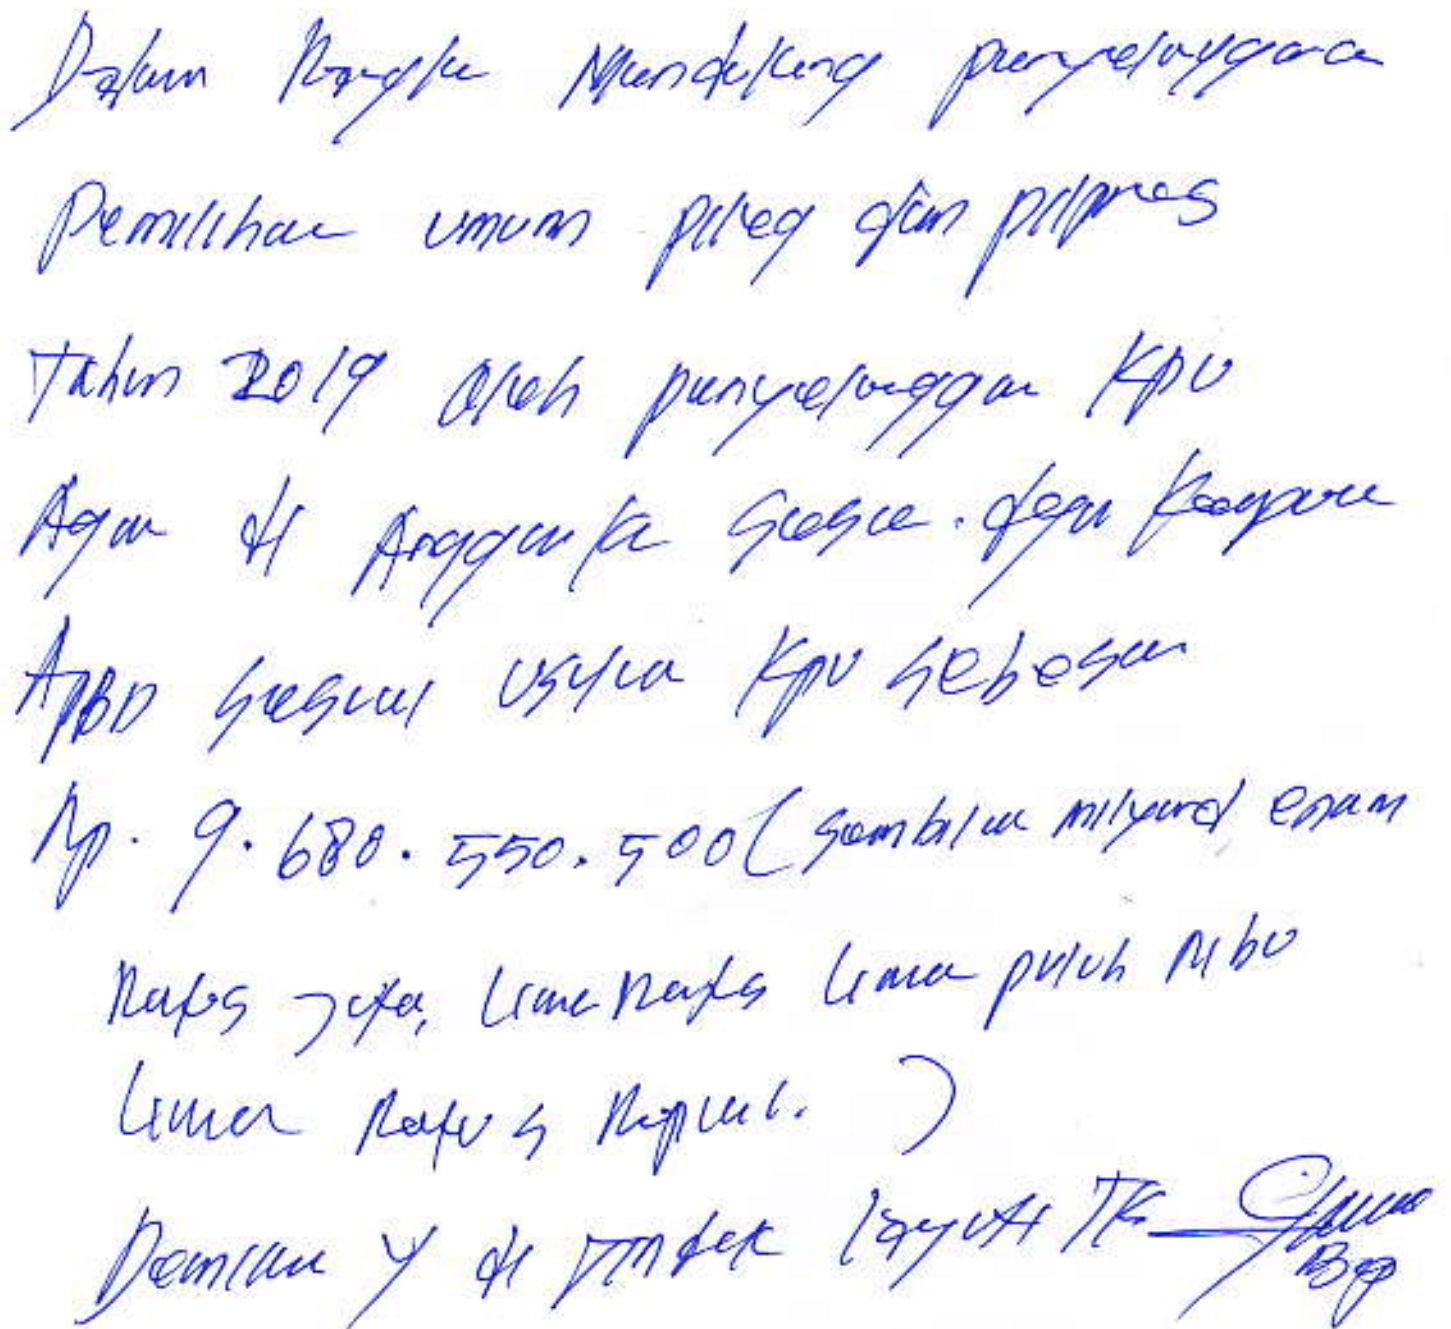 Dalam Rangka Mendukung penyelenggara
Pemilihan umum pileg dan pilpres
Tahun 2019 oleh penyelenggara KPU
Agar di Anggarka sesuai dgan
APBD sesuai usulan KPU sebesar
Rp. 9.680.550.500 (sembilan milyard enam
Ratus juta, lima Ratus lima puluh Ribu
lima Ratus Rupiah. )
Demikian y di tindak lanjuti TK